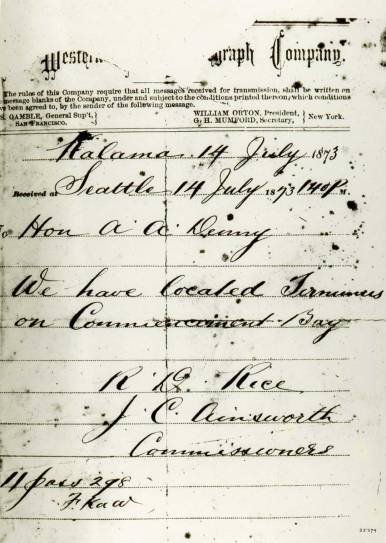 Western graph Company.
The rules of this Company require that all messages received for transmission, shall be written on
message blanks of the Company, under and subject to the conditions printed thereon, which conditions
ve been agreed to, by the sender of the following message.
S. GAMBLE, General Sup't, WILLIAM ORTON, President,
SAN FRANCISCO. G. H. MUMFORD, Secretary, New York.
Kalama 14 July 1873
Received at Seattle 14 July 1873 140 P. M.
To Hon A A Denny
We have located Terminus
on Commencement Bay
R D. Rice
J. C. Ainsworth
Commissioners
11 pass 298